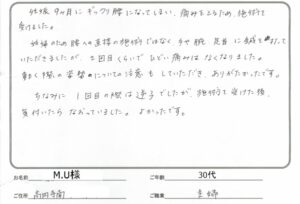 妊娠9ヵ月にギックリ腰になってしまい、痛みをとるため、施術を
受けました。
妊娠のため腰への直接の施術ではなく手や腕、足首に鍼を打って
いただきましたが、2回目くらいでひどい痛みはなくなりました。
動く際の姿勢についての注意もしていただき、ありがたかったです。
ちなみに1回目の際は逆子でしたが、施術を受けた後、
気付いたらなおっていました。よかったです。
お名前 M.U様 ご年齢 30代
ご住所 高円寺南 ご職業 主婦